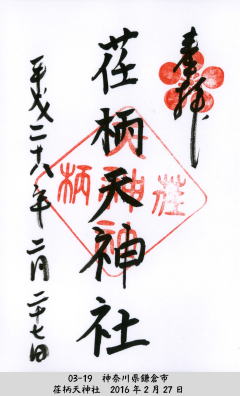 奉拝
荏柄天神社
平成二十八年 二月 二十七日
荏柄天神社
03-19 神奈川県鎌倉市
荏柄天神社 2016年2月27日